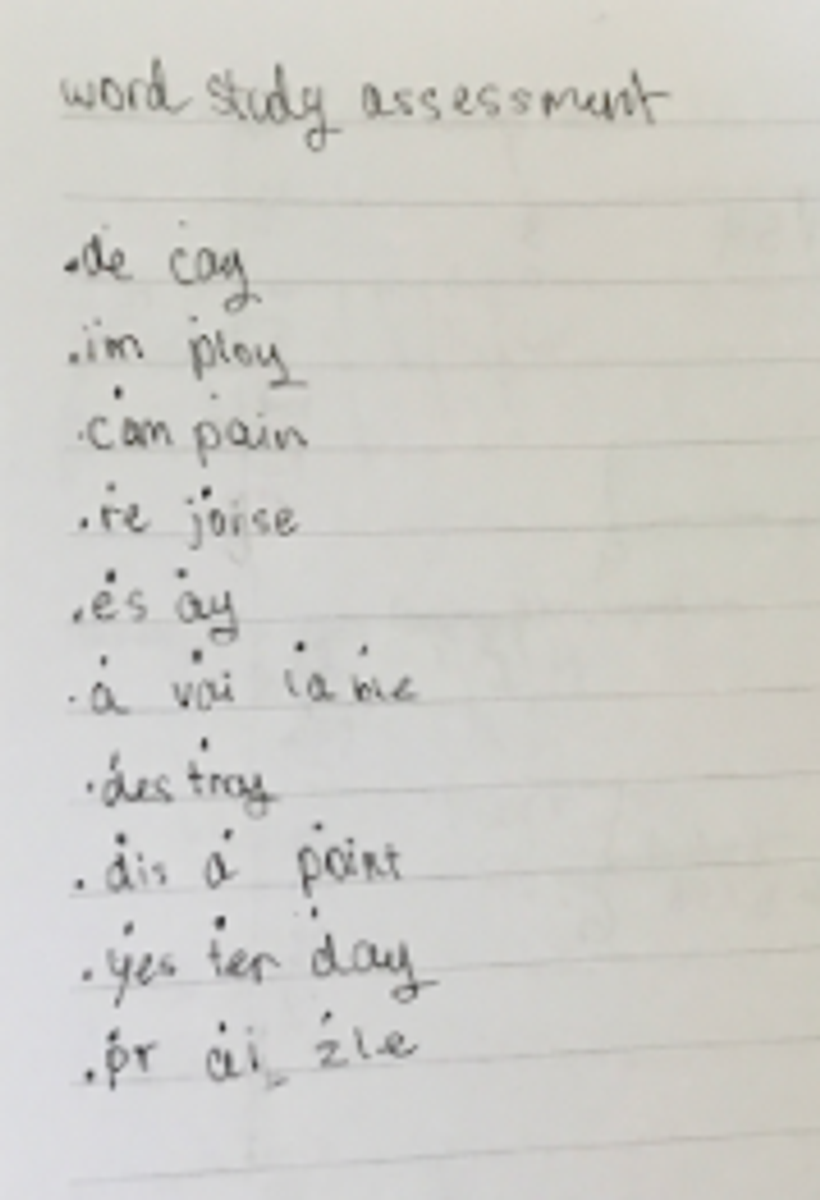 word study assessment
.de cay
.im ploy
.cam pain
.re joise
.es ay
.a vai la ble
.des troy
.dis a point
.yes ter day
.pr ai zle